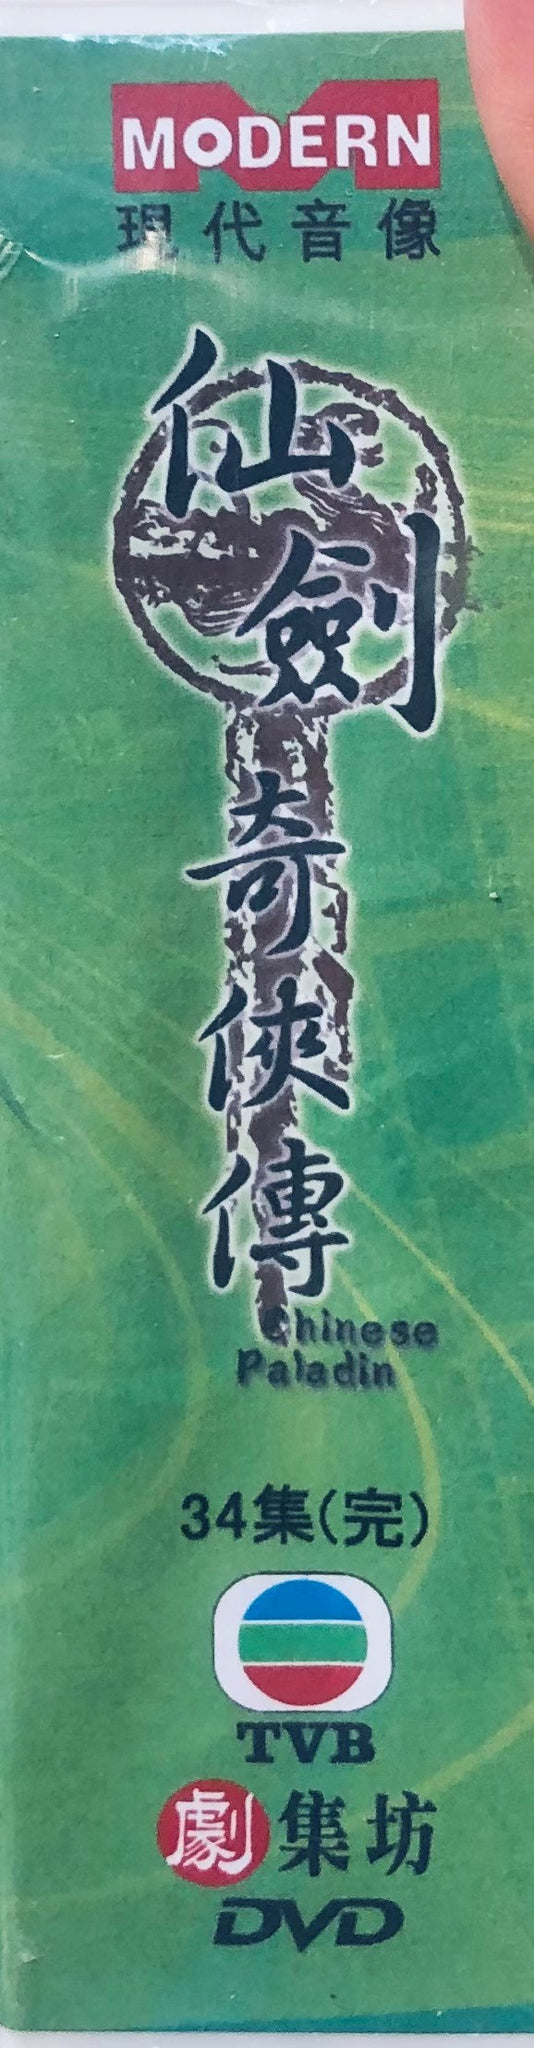 MODERN
現代音像
仙劍奇俠傳
Chinese
Paladin
34集(完)
TVB
劇集坊
DVD